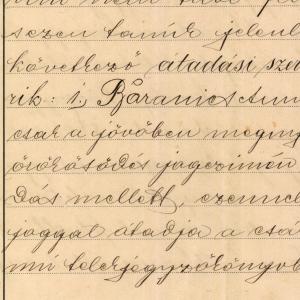 szen tanúk jelenl
következő átadási sze
rik: 1. Baranics Ann
csak a jövőben megny
örökösödés jogczimén
dás mellett, ezennel
joggal átadja a csá
mu telekjegyzőkönyvb